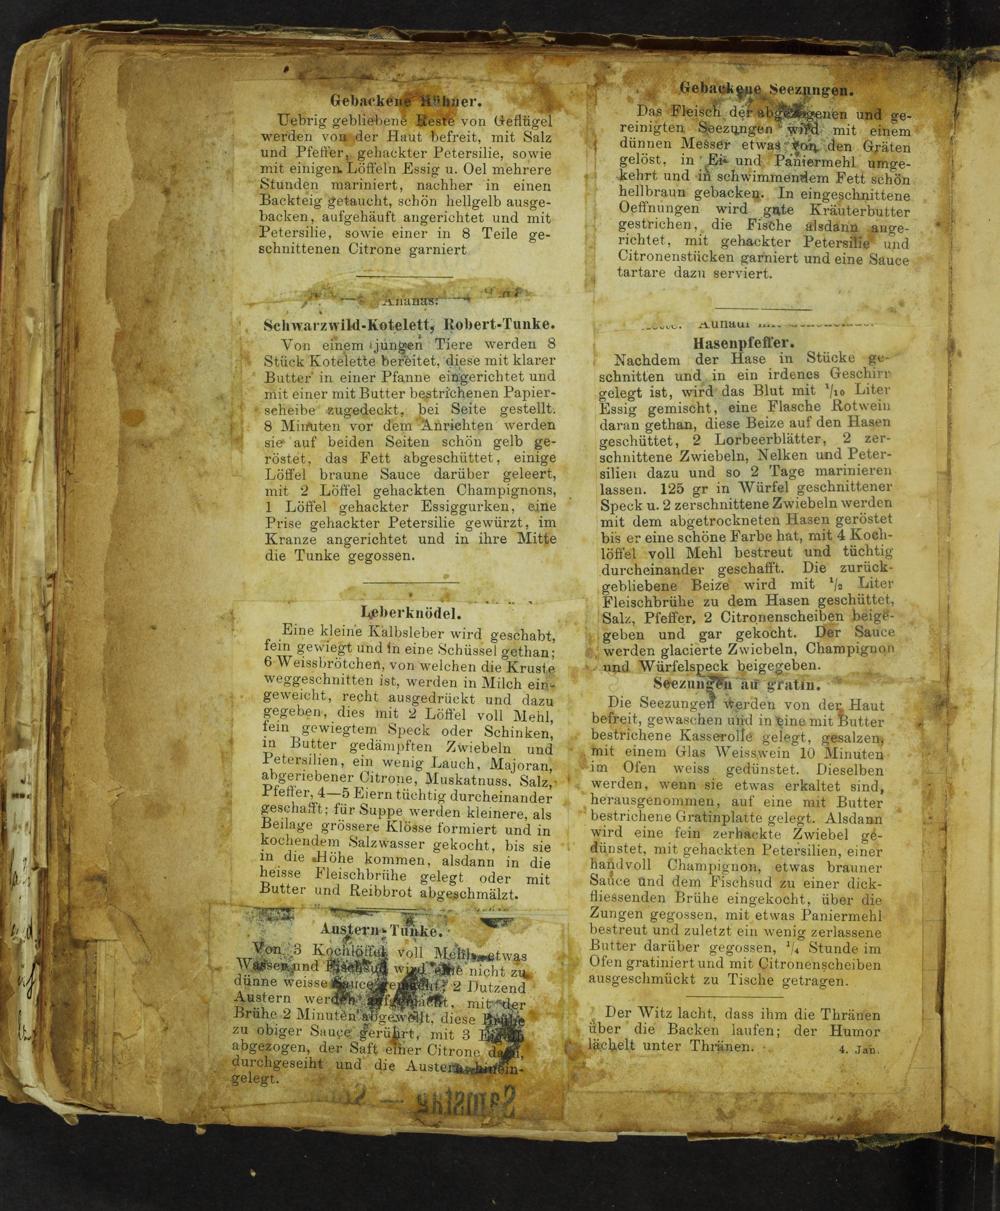 Gebackene Hühner.
Uebrig gebliebene Reste von Geflügel
werden von der Haut befreit, mit Salz
und Pfeffer, gehackter Petersilie, sowie
mit einigen Löffeln Essig u. Oel mehrere
Stunden mariniert, nachher in einen
Backteig getaucht, schön hellgelb ausge-
backen, aufgehäuft angerichtet und mit
Petersilie, sowie einer in 8 Teile ge-
schnittenen Citrone garniert
Ananas:
Schwarzwild-Kotelett, Robert-Tunke.
Von einem jungen Tiere werden 8
Stück Kotelette bereitet, diese mit klarer
Butter in einer Pfanne eingerichtet und
mit einer mit Butter bestrichenen Papier-
scheibe zugedeckt, bei Seite gestellt.
8 Minuten vor dem Anrichten werden
sie auf beiden Seiten schön gelb ge-
röstet, das Fett abgeschüttet, einige
Löffel braune Sauce darüber geleert,
mit 2 Löffel gehackten Champignons,
1 Löffel gehackter Essiggurken, eine
Prise gehackter Petersilie gewürzt, im
Kranze angerichtet und in ihre Mitte
die Tunke gegossen.
Leberknödel.
Eine kleine Kalbsleber wird geschabt,
fein gewiegt und in eine Schüssel gethan;
6 Weissbrötchen, von welchen die Kruste
weggeschnitten ist, werden in Milch ein-
geweicht, recht ausgedrückt und dazu
gegeben, dies mit 2 Löffel voll Mehl,
fein gewiegtem Speck oder Schinken,
in Butter gedämpften Zwiebeln und
Petersilien, ein wenig Lauch, Majoran,
abgeriebener Citrone, Muskatnuss, Salz,
Pfeffer, 4—5 Eiern tüchtig durcheinander
geschafft; für Suppe werden kleinere, als
Beilage grössere Klösse formiert und in
kochendem Salzwasser gekocht, bis sie
in die Höhe kommen, alsdann in die
heisse Fleischbrühe gelegt oder mit
Butter und Reibbrot abgeschmälzt.
Austern-Tunke.
Von 3 Kochlöffel voll Mehl, etwas
Wasser und Fischsud wird eine nicht zu
dünne weisse Sauce gemacht; 2 Dutzend
Austern werden aufgemacht, mit der
Brühe 2 Minuten abgewellt, diese Brühe
zu obiger Sauce gerührt, mit 3
abgezogen, der Saft einer Citrone dazu,
durchgeseiht und die Austern hinein-
gelegt.
Samstag —
Gebackene Seezungen.
Das Fleisch der abgezogenen und ge-
reinigten Seezungen wird mit einem
dünnen Messer etwas von den Gräten
gelöst, in Ei und Paniermehl umge-
kehrt und in schwimmendem Fett schön
hellbraun gebacken. In eingeschnittene
Oeffnungen wird gute Kräuterbutter
gestrichen, die Fische alsdann ange-
richtet, mit gehackter Petersilie und
Citronenstücken garniert und eine Sauce
tartare dazu serviert.
Hasenpfeffer.
Nachdem der Hase in Stücke ge-
schnitten und in ein irdenes Geschirr
gelegt ist, wird das Blut mit 1/10 Liter
Essig gemischt, eine Flasche Rotwein
daran gethan, diese Beize auf den Hasen
geschüttet, 2 Lorbeerblätter, 2 zer-
schnittene Zwiebeln, Nelken und Peter-
silien dazu und so 2 Tage marinieren
lassen. 125 gr in Würfel geschnittener
Speck u. 2 zerschnittene Zwiebeln werden
mit dem abgetrockneten Hasen geröstet
bis er eine schöne Farbe hat, mit 4 Koch-
löffel voll Mehl bestreut und tüchtig
durcheinander geschafft. Die zurück-
gebliebene Beize wird mit 1/2 Liter
Fleischbrühe zu dem Hasen geschüttet,
Salz, Pfeffer, 2 Citronenscheiben beige-
geben und gar gekocht. Der Sauce
werden glacierte Zwiebeln, Champignon
und Würfelspeck beigegeben.
Seezungen au gratin.
Die Seezungen werden von der Haut
befreit, gewaschen und in eine mit Butter
bestrichene Kasserolle gelegt, gesalzen,
mit einem Glas Weisswein 10 Minuten
im Ofen weiss gedünstet. Dieselben
werden, wenn sie etwas erkaltet sind,
herausgenommen, auf eine mit Butter
bestrichene Gratinplatte gelegt. Alsdann
wird eine fein zerhackte Zwiebel ge-
dünstet, mit gehackten Petersilien, einer
handvoll Champignon, etwas brauner
Sauce und dem Fischsud zu einer dick-
fliessenden Brühe eingekocht, über die
Zungen gegossen, mit etwas Paniermehl
bestreut und zuletzt ein wenig zerlassene
Butter darüber gegossen, 1/4 Stunde im
Ofen gratiniert und mit Citronenscheiben
ausgeschmückt zu Tische getragen.
Der Witz lacht, dass ihm die Thränen
über die Backen laufen; der Humor
lächelt unter Thränen.
4. Jan.